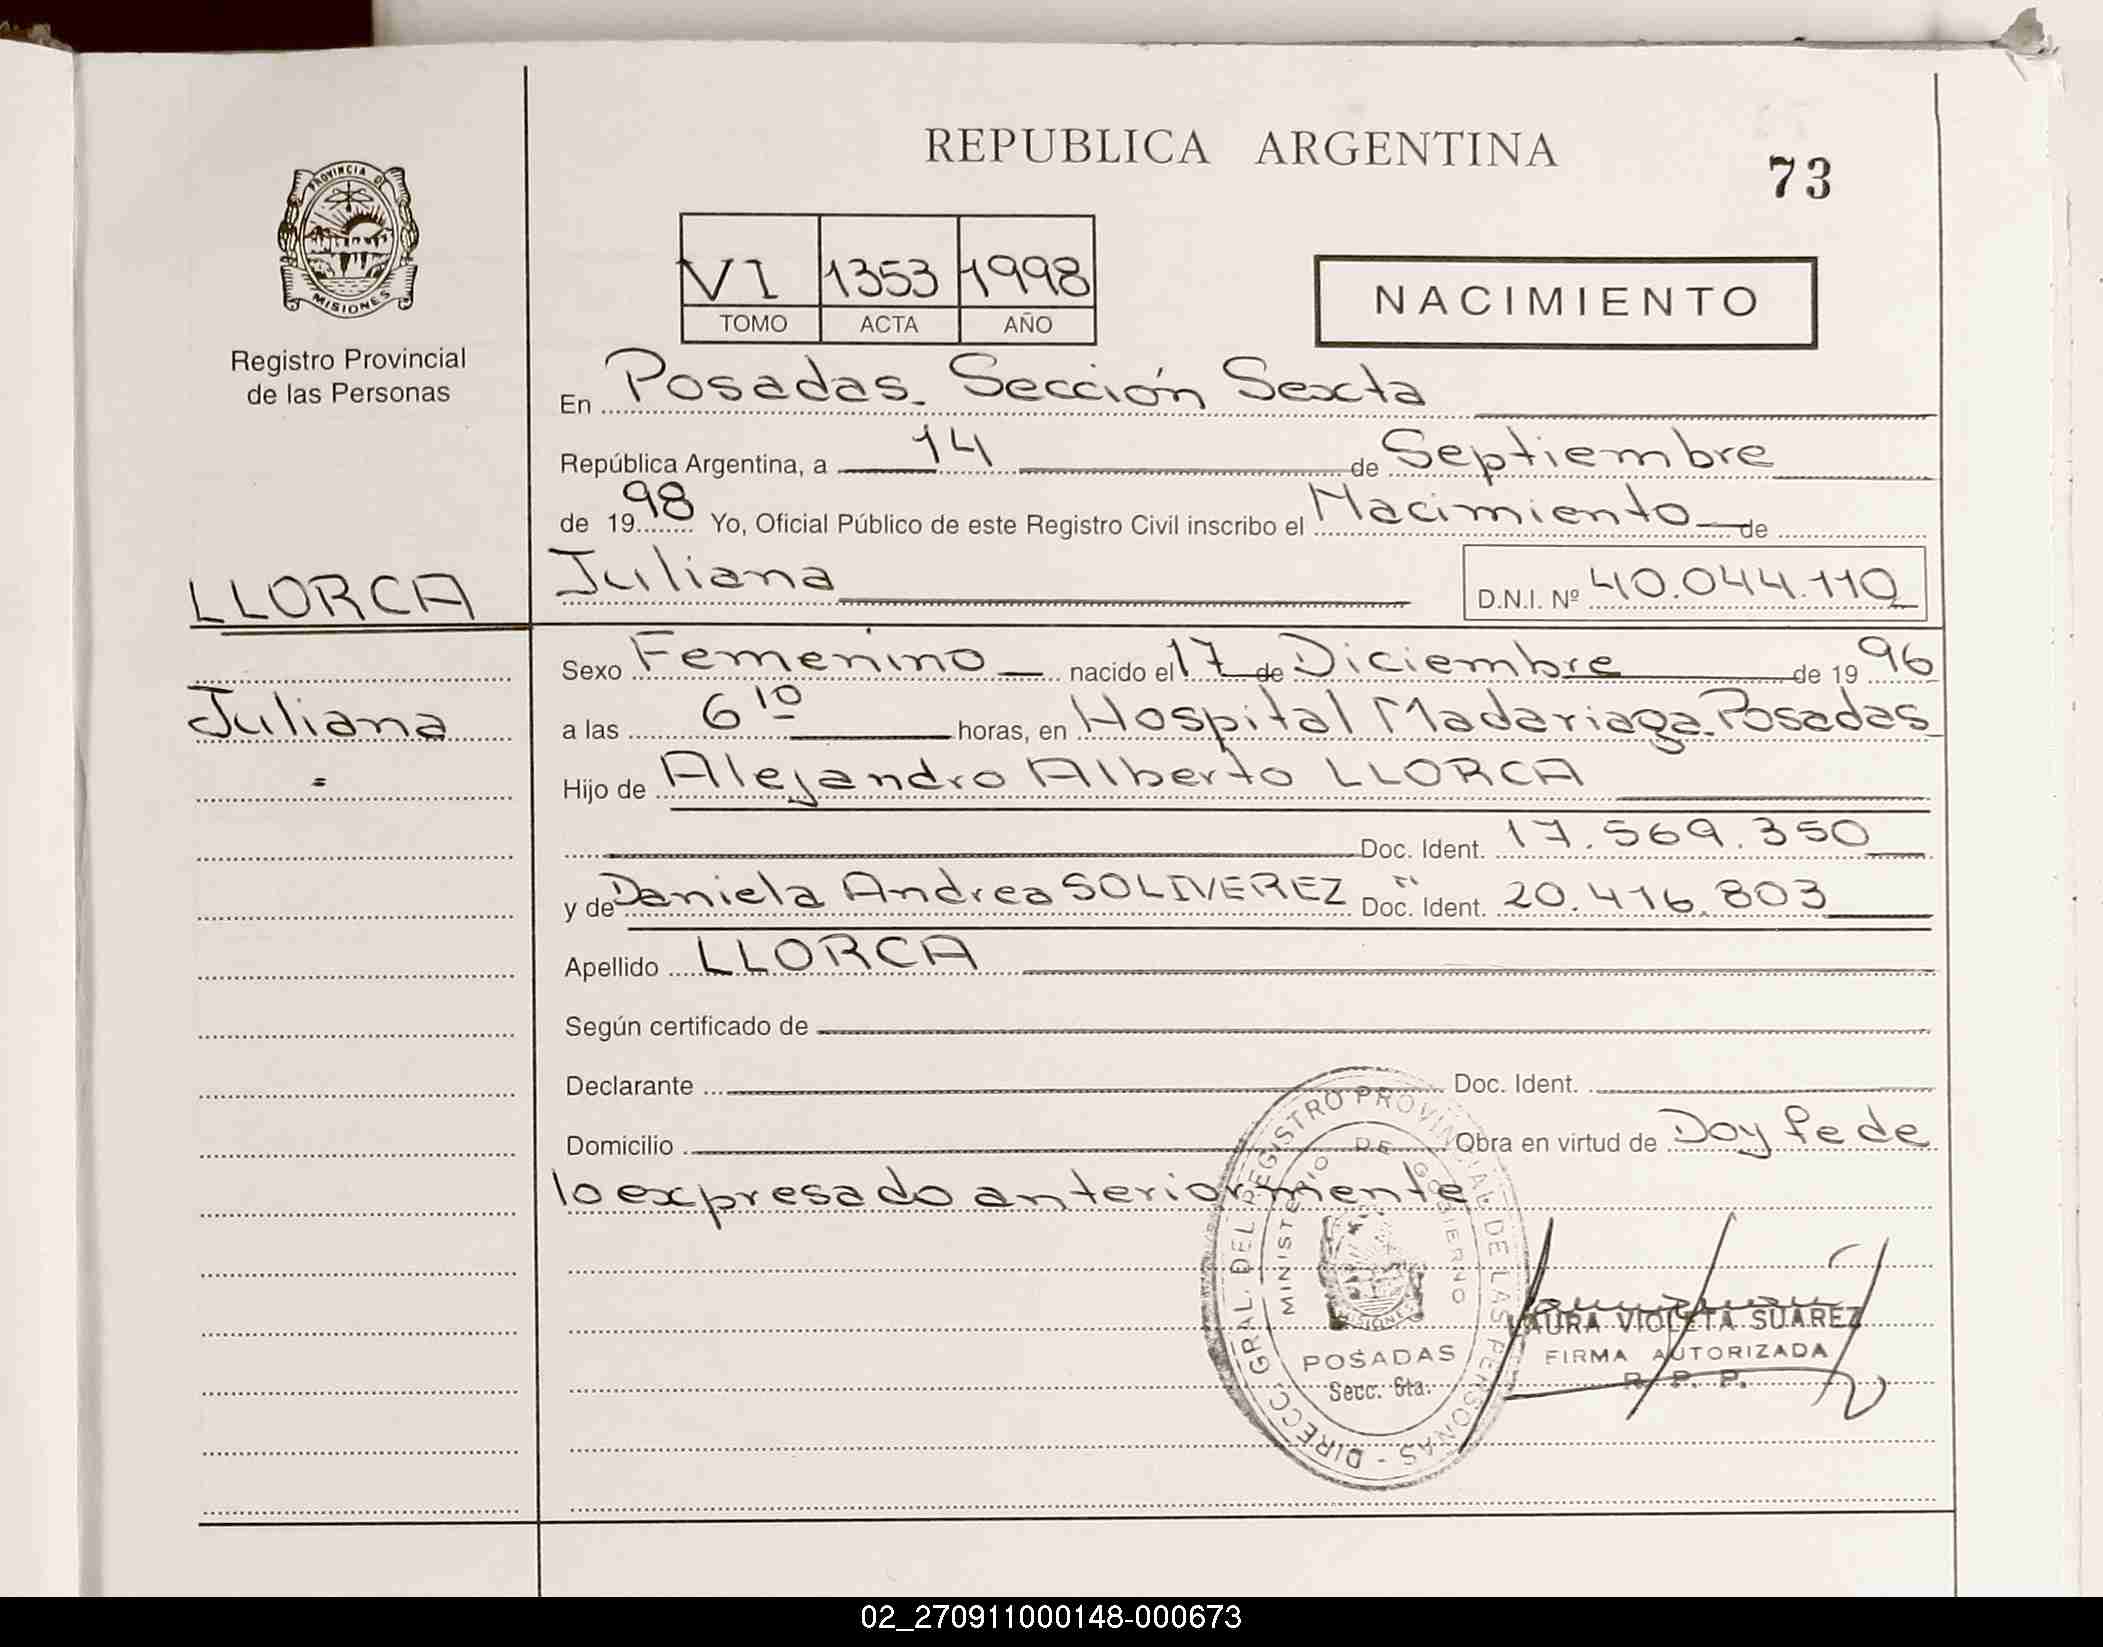 REPUBLICA ARGENTINA
73
PROVINCIA DE
MISIONES
Registro Provincial
de las Personas
VI 1353 1998
TOMO ACTA AÑO
NACIMIENTO
En Posadas. Sección Sexta
República Argentina, a 14 de Septiembre
de 1998 Yo, Oficial Público de este Registro Civil inscribo el Nacimiento de
LLORCA
Juliana D.N.I. Nº 40.044.110
Sexo Femenino nacido el 17 de Diciembre de 1996
Juliana
a las 6 10 horas, en Hospital Madariaga. Posadas
Hijo de Alejandro Alberto LLORCA
Doc. Ident. 17.569.350
y de Daniela Andrea SOLIVEREZ Doc. Ident. 20.416.803
Apellido LLORCA
Según certificado de
Declarante Doc. Ident.
Domicilio Obra en virtud de Doy fe de
lo expresado anteriormente
DIRECC. GRAL. DEL REGISTRO PROVINCIAL DE LAS PERSONAS -
MINISTERIO DE GOBIERNO
MISIONES
POSADAS
Secc. 6ta.
LAURA VIOLETA SUAREZ
FIRMA AUTORIZADA
R. P. P.
02_270911000148-000673